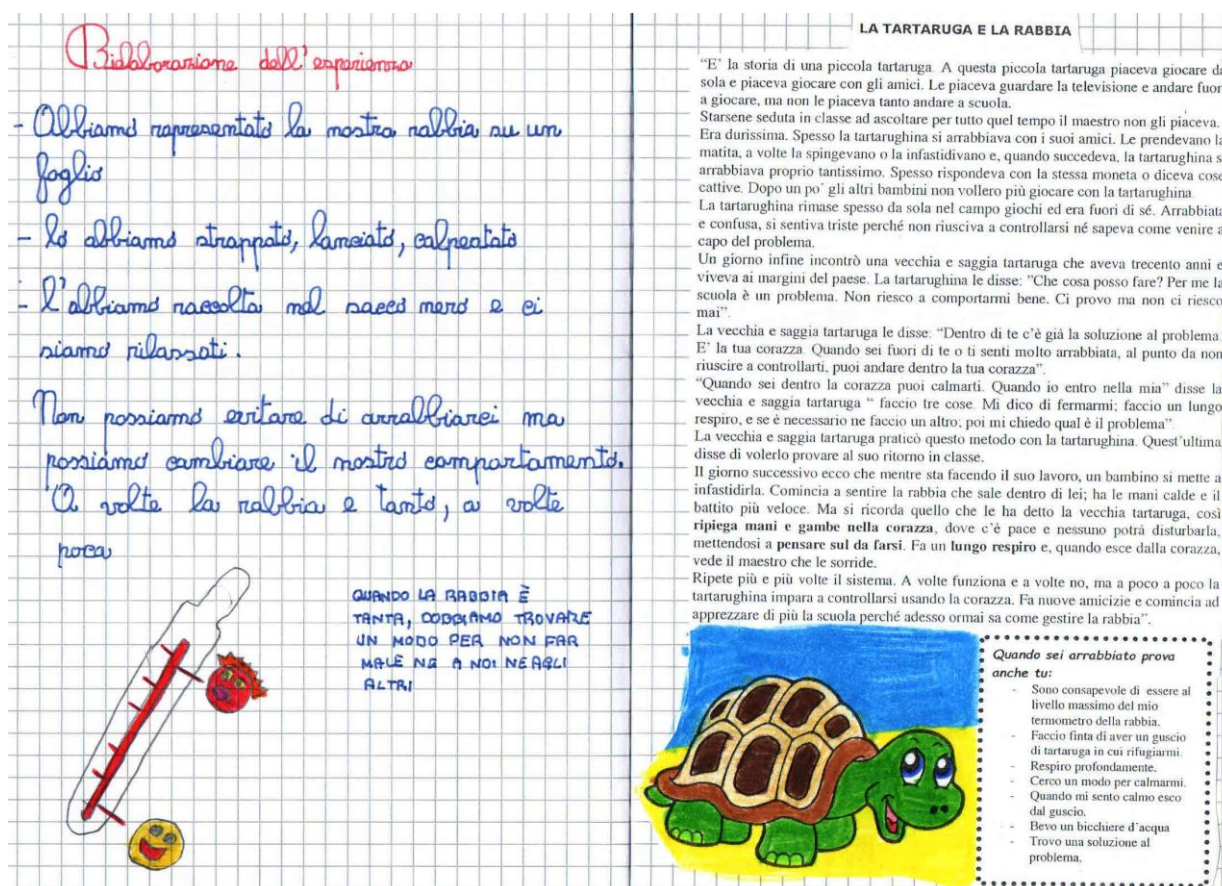 Rielaborazione dell'esperienza
- Abbiamo rapresentato la nostra rabbia su un
foglio
- Lo abbiamo strappato, lanciato, calpestato
- L'abbiamo raccolta nel sacco nero e ci
siamo rilassati.
Non possiamo evitare di arrabbiarci ma
possiamo cambiare il nostro comportamento.
A volte la rabbia e tanto, a volte
poca
QUANDO LA RABBIA È
TANTA, DOBBIAMO TROVARE
UN MODO PER NON FAR
MALE NE A NOI NE AGLI
ALTRI
LA TARTARUGA E LA RABBIA
"E' la storia di una piccola tartaruga. A questa piccola tartaruga piaceva giocare da
sola e piaceva giocare con gli amici. Le piaceva guardare la televisione e andare fuor
a giocare, ma non le piaceva tanto andare a scuola.
Starsene seduta in classe ad ascoltare per tutto quel tempo il maestro non gli piaceva.
Era durissima. Spesso la tartarughina si arrabbiava con i suoi amici. Le prendevano la
matita, a volte la spingevano o la infastidivano e, quando succedeva, la tartarughina s
arrabbiava proprio tantissimo. Spesso rispondeva con la stessa moneta o diceva cose
cattive. Dopo un po' gli altri bambini non vollero più giocare con la tartarughina.
La tartarughina rimase spesso da sola nel campo giochi ed era fuori di sé. Arrabbiata
e confusa, si sentiva triste perché non riusciva a controllarsi né sapeva come venire a
capo del problema.
Un giorno infine incontrò una vecchia e saggia tartaruga che aveva trecento anni e
viveva ai margini del paese. La tartarughina le disse: "Che cosa posso fare? Per me la
scuola è un problema. Non riesco a comportarmi bene. Ci provo ma non ci riesco
mai".
La vecchia e saggia tartaruga le disse: "Dentro di te c'è già la soluzione al problema.
E' la tua corazza. Quando sei fuori di te o ti senti molto arrabbiata, al punto da non
riuscire a controllarti, puoi andare dentro la tua corazza".
"Quando sei dentro la corazza puoi calmarti. Quando io entro nella mia" disse la
vecchia e saggia tartaruga " faccio tre cose. Mi dico di fermarmi; faccio un lungo
respiro, e se è necessario ne faccio un altro; poi mi chiedo qual è il problema".
La vecchia e saggia tartaruga praticò questo metodo con la tartarughina. Quest'ultima
disse di volerlo provare al suo ritorno in classe.
Il giorno successivo ecco che mentre sta facendo il suo lavoro, un bambino si mette a
infastidirla. Comincia a sentire la rabbia che sale dentro di lei; ha le mani calde e il
battito più veloce. Ma si ricorda quello che le ha detto la vecchia tartaruga, così
ripiega mani e gambe nella corazza, dove c'è pace e nessuno potrà disturbarla,
mettendosi a pensare sul da farsi. Fa un lungo respiro e, quando esce dalla corazza,
vede il maestro che le sorride.
Ripete più e più volte il sistema. A volte funziona e a volte no, ma a poco a poco la
tartarughina impara a controllarsi usando la corazza. Fa nuove amicizie e comincia ad
apprezzare di più la scuola perché adesso ormai sa come gestire la rabbia".
Quando sei arrabbiato prova
anche tu:
- Sono consapevole di essere al
livello massimo del mio
termometro della rabbia.
- Faccio finta di aver un guscio
di tartaruga in cui rifugiarmi.
- Respiro profondamente.
- Cerco un modo per calmarmi.
- Quando mi sento calmo esco
dal guscio.
- Bevo un bicchiere d'acqua
- Trovo una soluzione al
problema.